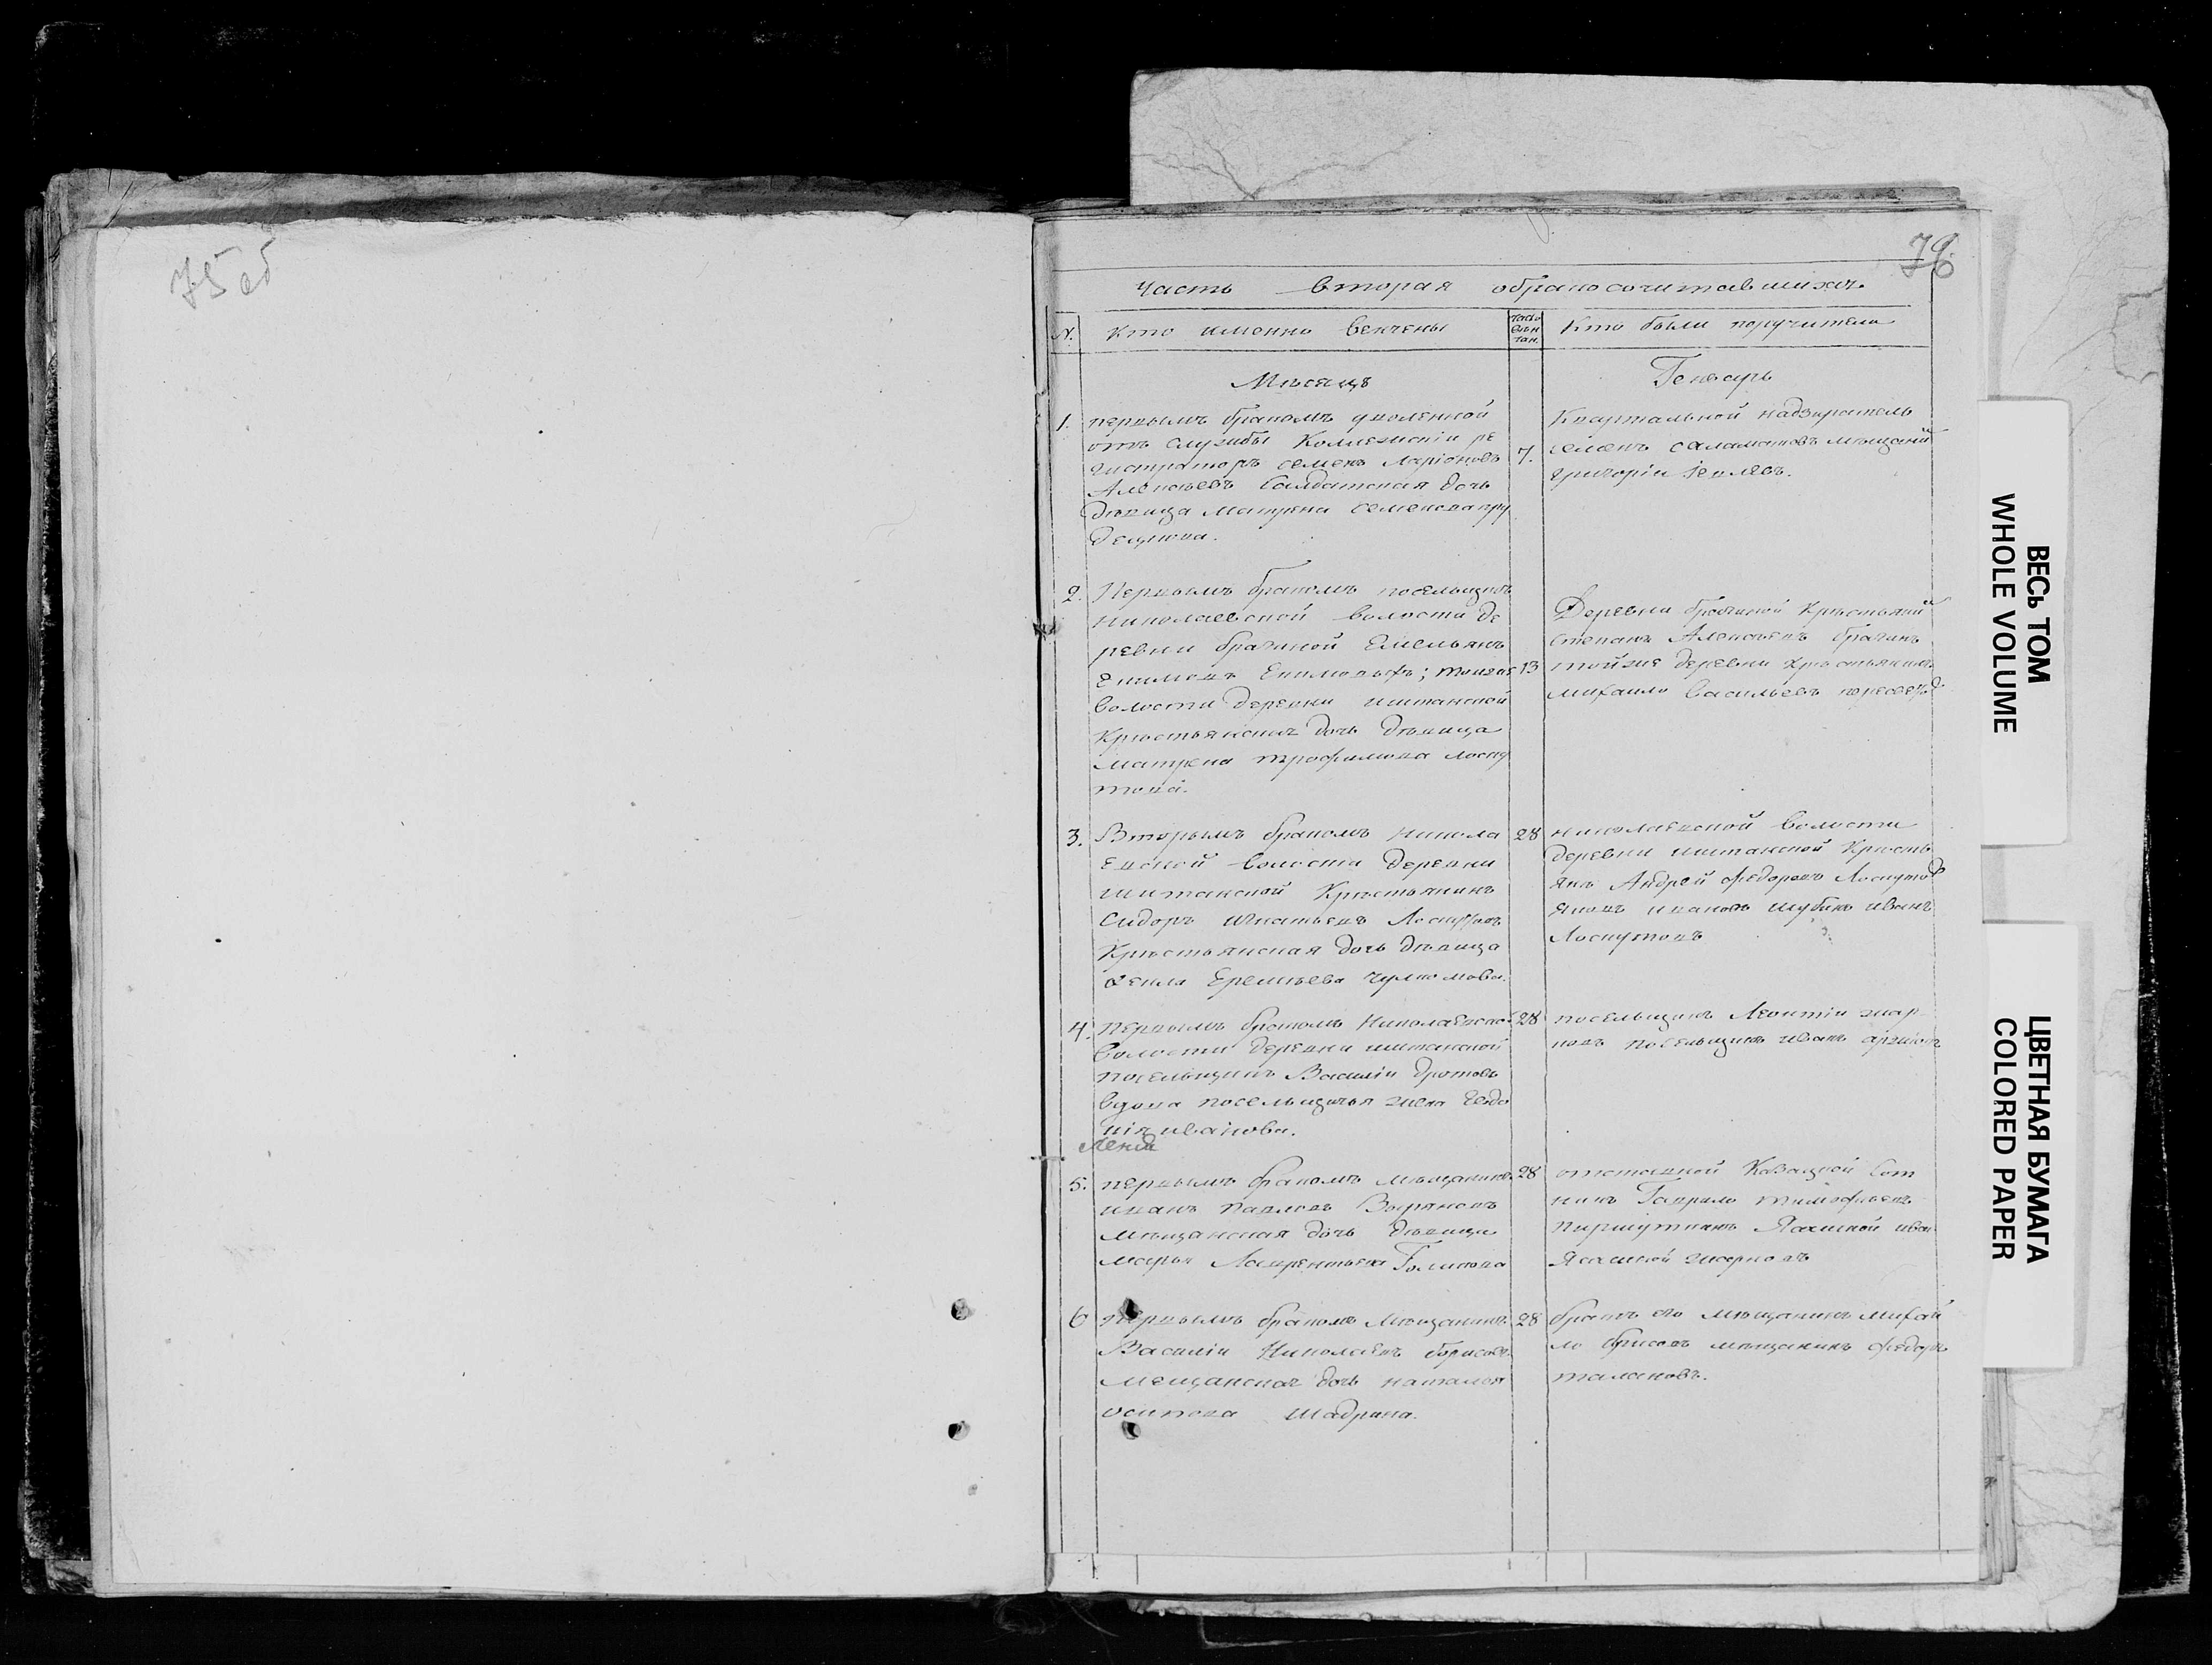 75 об
76
часть вторая обракосочитавшихся
N.
кто имянно венчены
кто были поручители
Мѣсяцъ
Генварь
1.
первымъ бракомъ уволенной
отъ службы Коллежскіи ре
гистраторъ семенъ Ларіоновъ
Алексѣевъ Салдатская дочь
дѣвица матрена семенова
7.
Квартальной надзиратель
семенъ саламатовъ мѣщани
григоріи
2.
Первымъ бракомъ посельщикъ
николаевской волости де
ревни брагиной Емельянъ
Екимовъ Екимовыхъ; тоиже
волости деревни шитанской
Крѣстьянская дочь дѣвица
матрена трофимова лоску
това.
13
Деревни брагиной крѣстьянинъ
степанъ Алексѣевъ брагинъ
тойже деревни крѣстьянинъ
михаило васильевъ
3.
Вторымъ бракомъ никола
евской волости деревни
шитанской Крѣстьянинъ
Сидоръ Игнатьевъ Лоскутовъ
Крѣстьянская дочь дѣвица
Фекла Еремѣева
28
николаевской волости
деревни шитанской Крѣсть
янъ Андрей федоровъ Лоскутовъ
Яковъ ивановъ шубинъ иванъ
Лоскутовъ
4.
первымъ бракомъ Николаевской
волости деревни шитанской
посельщикъ Василіи дротовъ
вдова посельщичья жена Евдо
кія иванова.
28
посельщикъ Леонтіи жар
ковъ посельщикъ иванъ
5.
первымъ бракомъ мѣщанинъ
иванъ павловъ Зыряновъ
мѣщанская дочь дѣвица
марья Лаврентьева Голикова
28
отставной Казацкой Сот
никъ Гаврило тимофѣевъ
Ясашной иван
Ясашной жарковъ
6
первымъ бракомъ Мѣщанинъ
Василіи Николаевъ борисовъ
мещанская дочь наталья
осипова шадрина.
28
братъ его мѣщанинъ михай
ло борисовъ мѣщанинъ федоръ
талановъ.
ВЕСЬ ТОМ
WHOLE VOLUME
ЦВЕТНАЯ БУМАГА
COLORED PAPER